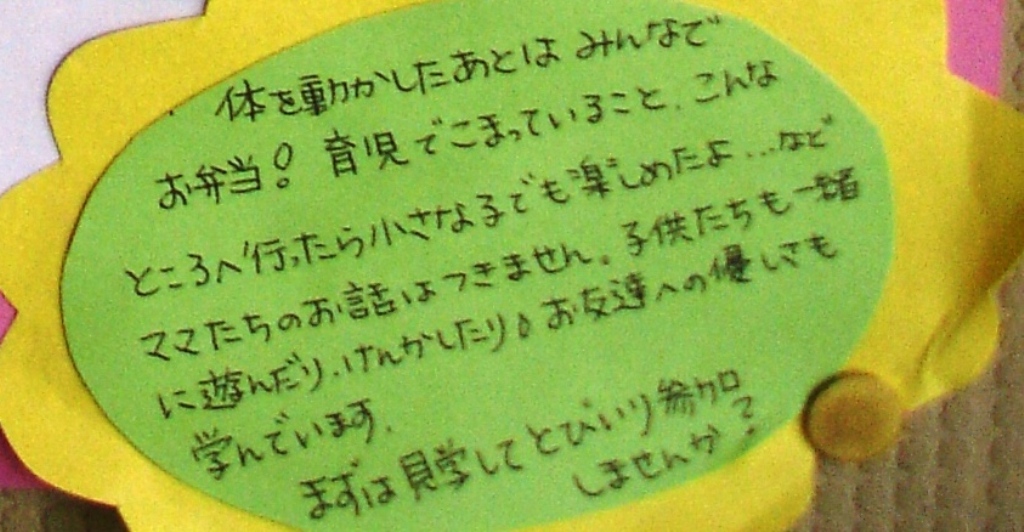 体を動かしたあとは みんなで
お弁当! 育児でこまっていること、こんな
ところへ行ったら小さな子でも楽しめたよ...など
ママたちのお話はつきません。子供たちも一緒
に遊んだり、けんかしたり♪お友達への優しさも
学んでいます。
まずは見学してとびいり参加
しませんか?